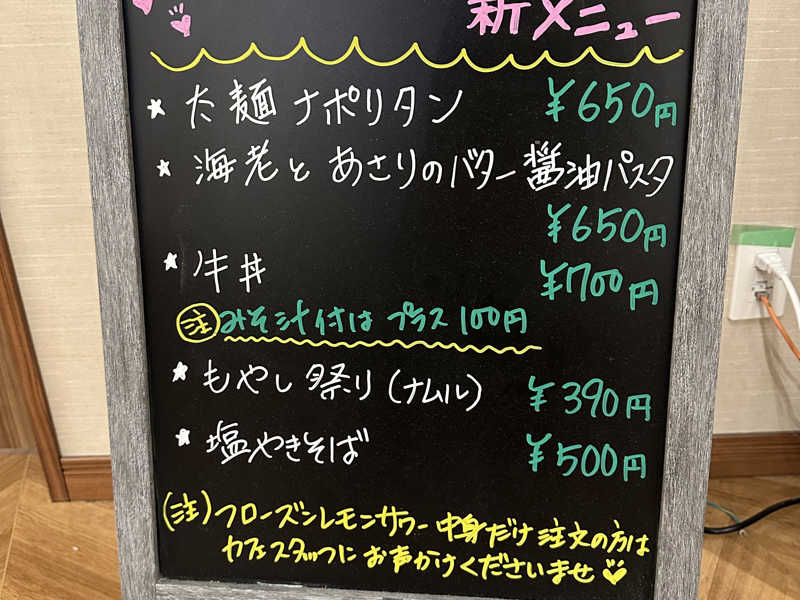 新メニュー
太麺ナポリタン ￥650円
海老とあさりのバター醤油パスタ
￥650円
牛丼 ￥700円
注 みそ汁付は プラス100円
もやし祭り(ナムル) ￥390円
塩やきそば ￥500円
(注)フローズンレモンサワー中身だけ注文の方は
カフェスタッフにお声かけくださいませ